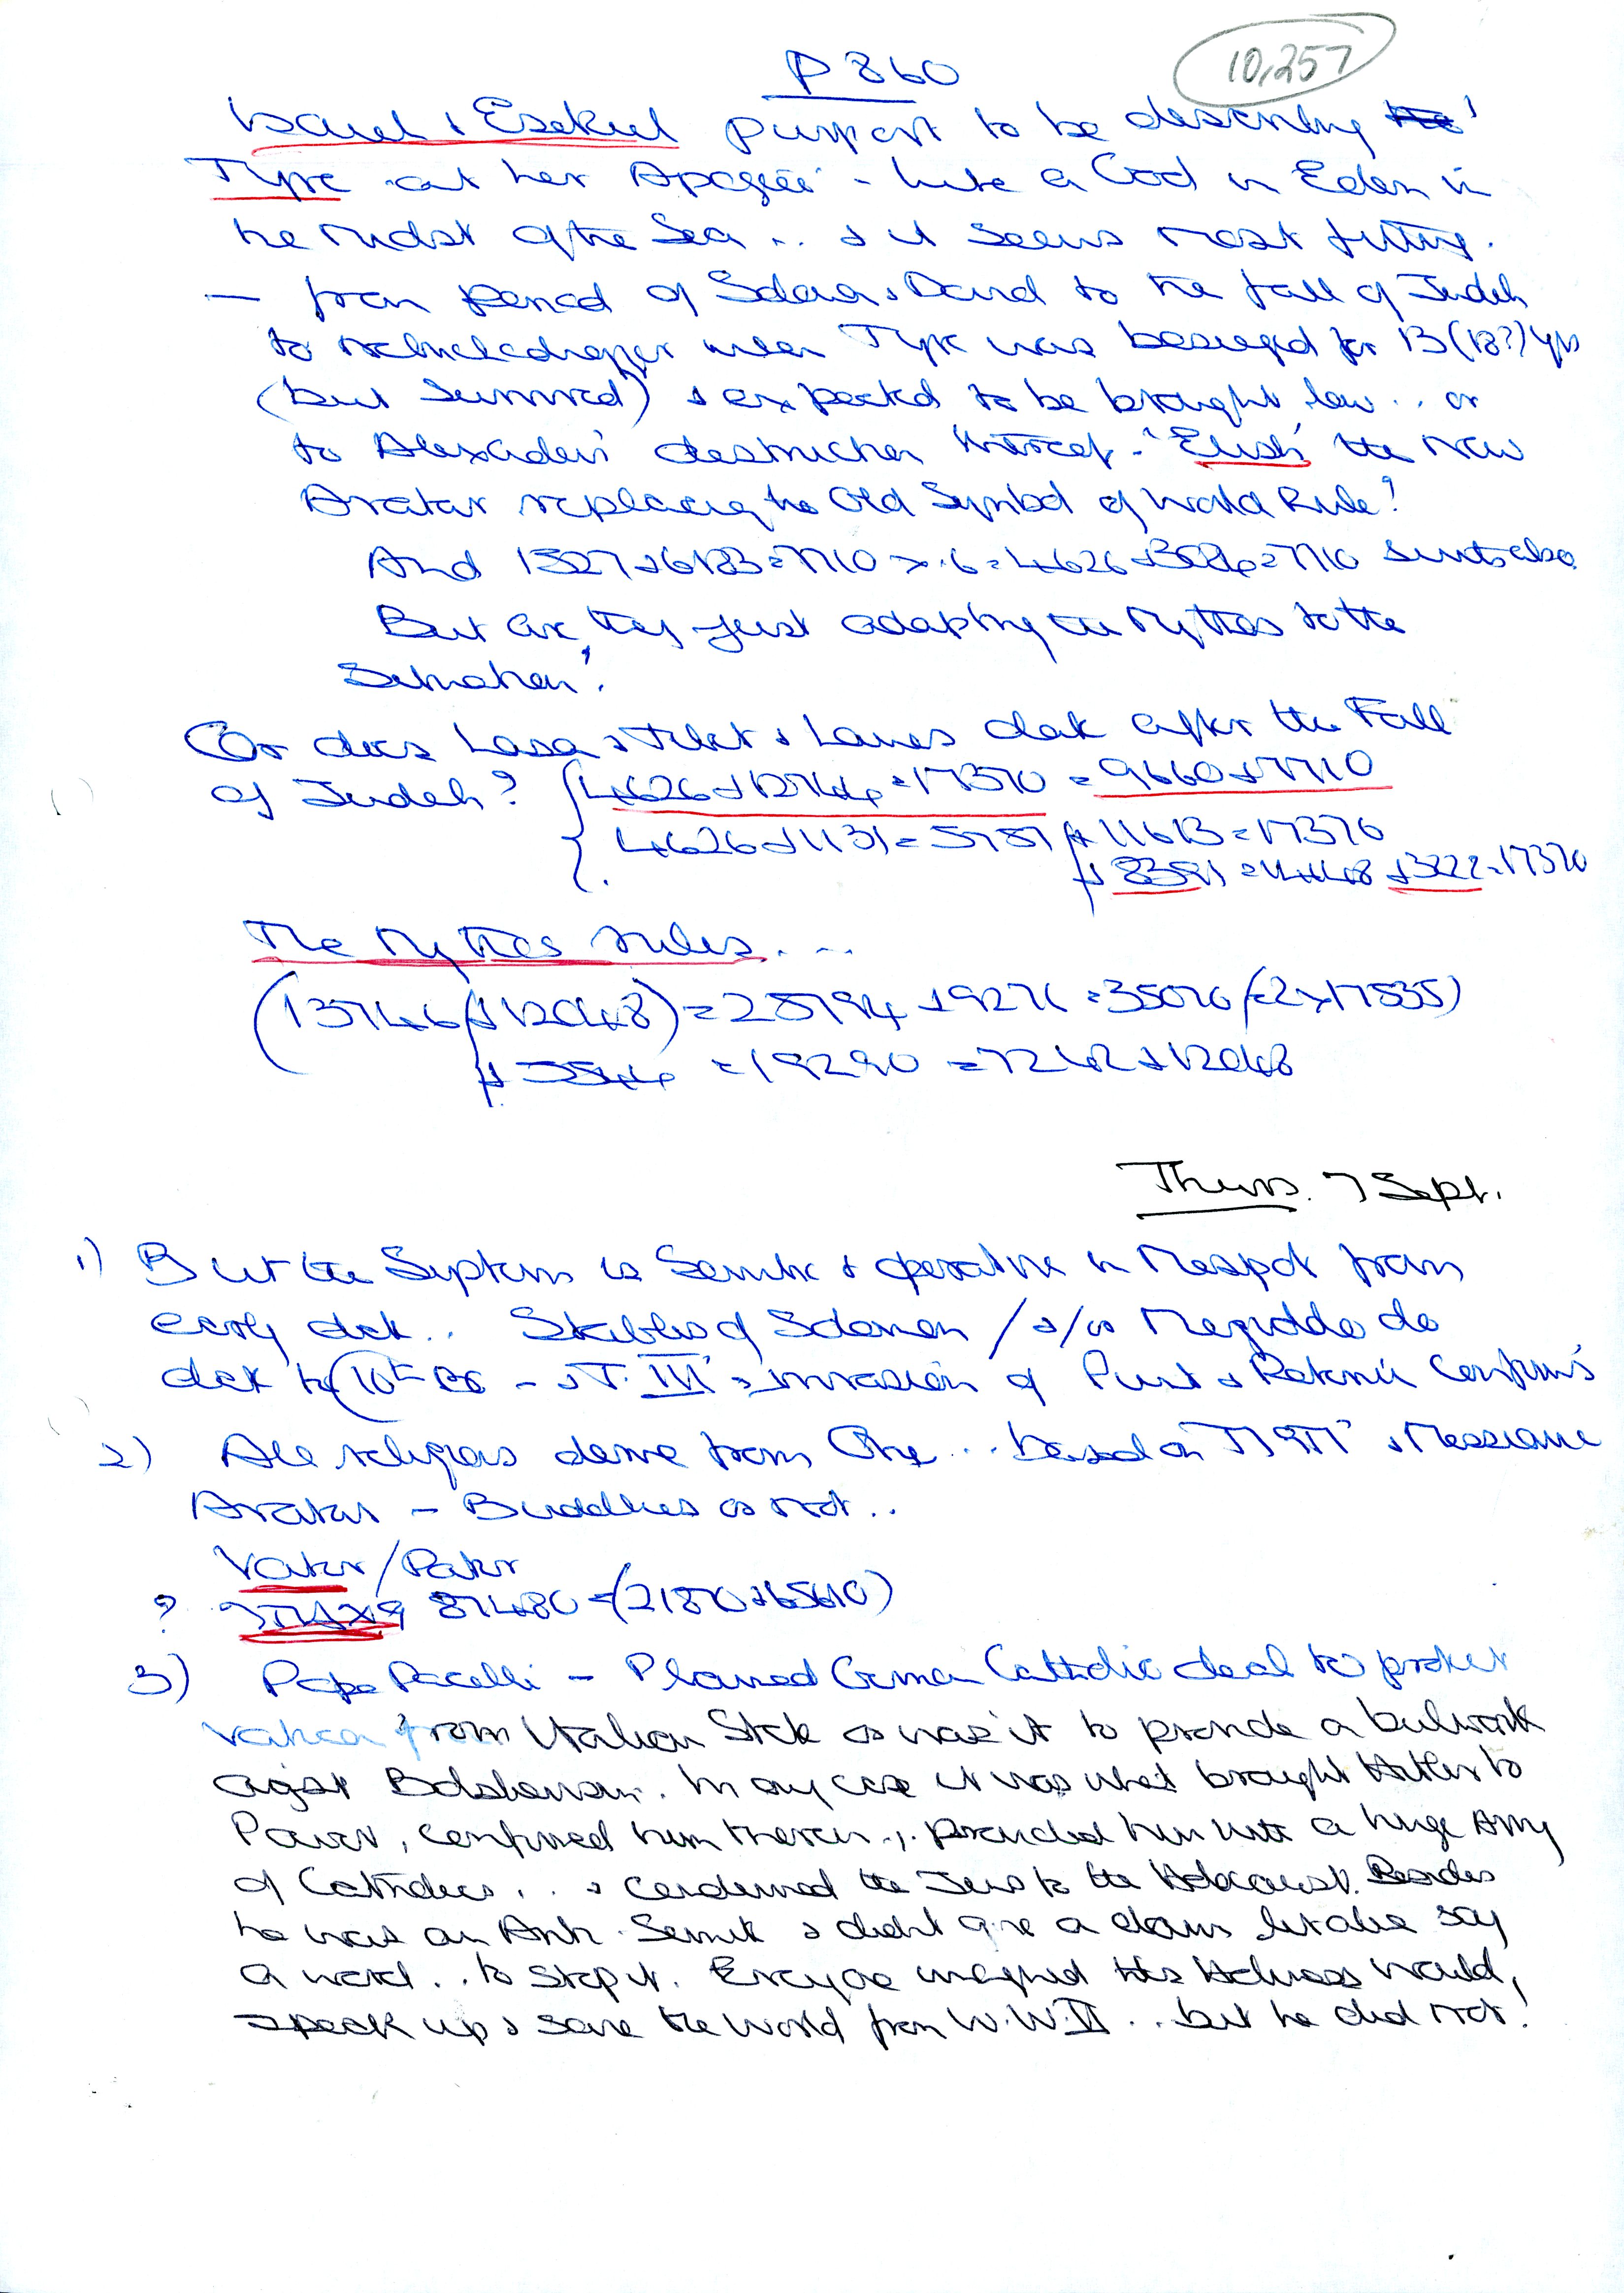 P 860
10,257
Isaiah & Ezekiel purport to be describing
Tyre at her Apogee - like a God in Eden in
the Midst of the Sea .. & it seems most fitting.
— from period of Solomon & David to the fall of Judah
to Nebuchednezzer when Tyre was besieged for 13 (18?) yrs
(but survived) & expected to be brought low .. or
to Alexander's destruction thereof - 'Elish' the New
Avatar replacing the Old Symbol of World Rule?
And 1527 + 6183 = 7710 × .6 = 4626 + 3084 = 7710 suits also.
But are they just adapting the Mythos to the
Situation?
Or does & & date after the Fall
of Judah? 4626 + 12744 = 17370 = 9660 + 7710
4626 + 1131 = 5757 + 11613 = 17370
+ 8391 = 14148 + 3222 = 17370
The Mythos rules. ...
(13746 + 12048) = 25794 + 9276 = 35070 (= 2 × 17535)
+ 5544 = 19290 = 7242 + 12048
Thurs. 7 Sept.
1) But the System is Semitic & operative in Mesopot from
early date .. Stables of Solomon / & / or Megiddo do
date to 10th BC - & T. III's invasion of Punt & Retenu confirms
2) All religions derive from One ... based on & Messianic
Avatar - Buddhism is not ..
Vater / Pater
? 87480 = (21870 + 65610)
3) Pope Pacelli - Planned German Catholic deal to protect
Vatican from Italian State or was it to provide a bulwark
against Bolshevism. In any case it was what brought Hitler to
Power, confirmed him therein ., provided him with a huge Army
of Catholics, .. & condemned the Jews to the Holocaust. Besides
he was an Anti-Semite & didn't give a damn let alone say
a word .. to stop it. Everyone imagined His Holiness would,
speak up & save the World from W.W.II .. but he did not!